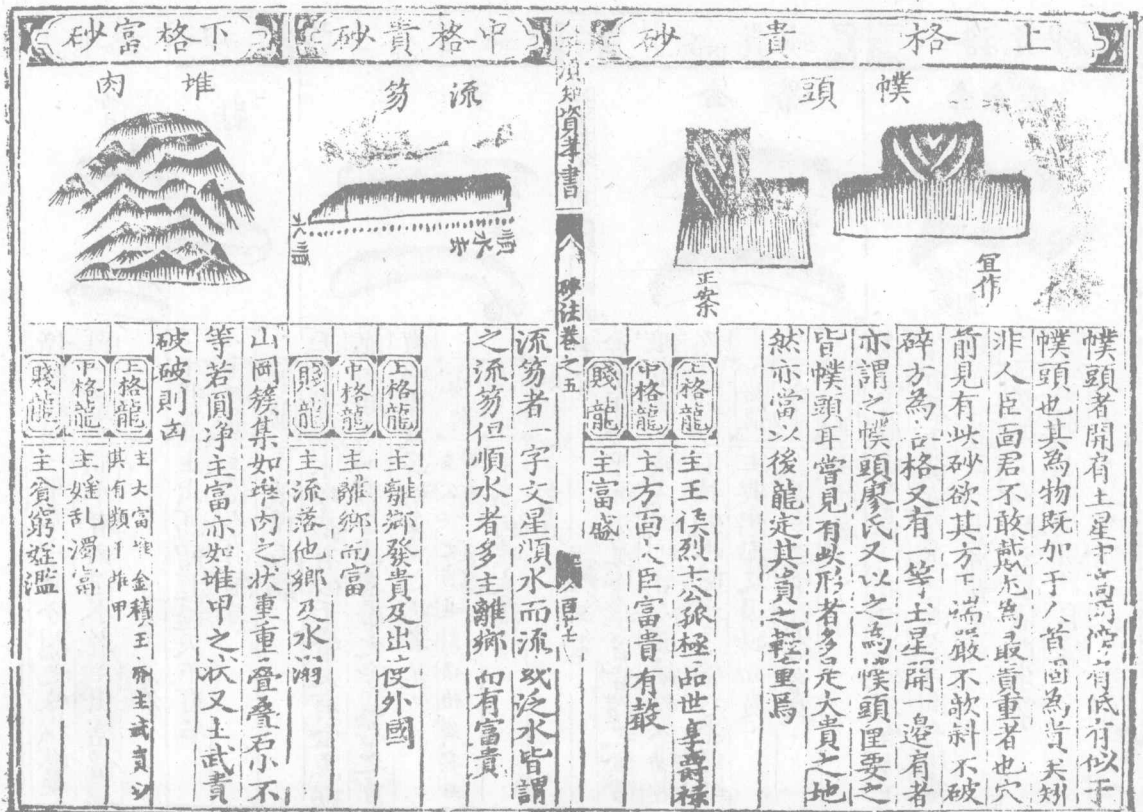 上格貴砂
幞頭
宜作
正案
幞頭者開肩土星中高而停肩低有似于
幞頭也其為物既加于人首固為貴矣
非人臣面君不敢戴尤為最貴重者也穴
前見有此砂欲其方正端嚴不欹斜不破
碎方為合格又有一等土星開一邊肩者
亦謂之幞頭廖氏又以之為幞頭但要之
皆幞頭耳嘗見有此形者多是大貴之地
然亦當以後龍定其貴之輕重焉
上格龍 主王侯烈士公孤極品世享爵祿
中格龍 主方面大臣富貴有散
賤龍 主富盛
資孝書
砂法卷之五
百十七
中格貴砂
流笏
順水去
流笏者一字文星順水而流或泛水皆謂
之流笏但順水者多主離鄉而有富貴
上格龍 主離鄉發貴及出使外國
中格龍 主離鄉而富
賤龍 主流落他鄉及水溺
下格富砂
堆肉
山岡簇集如堆肉之狀重重疊疊石小不
等若圓净主富亦如堆甲之狀又主武貴
破破則凶
上格龍 主大富 金積玉 主武貴以
其有類于堆甲
中格龍 主婬乱濁富
賤龍 主貧窮婬濫